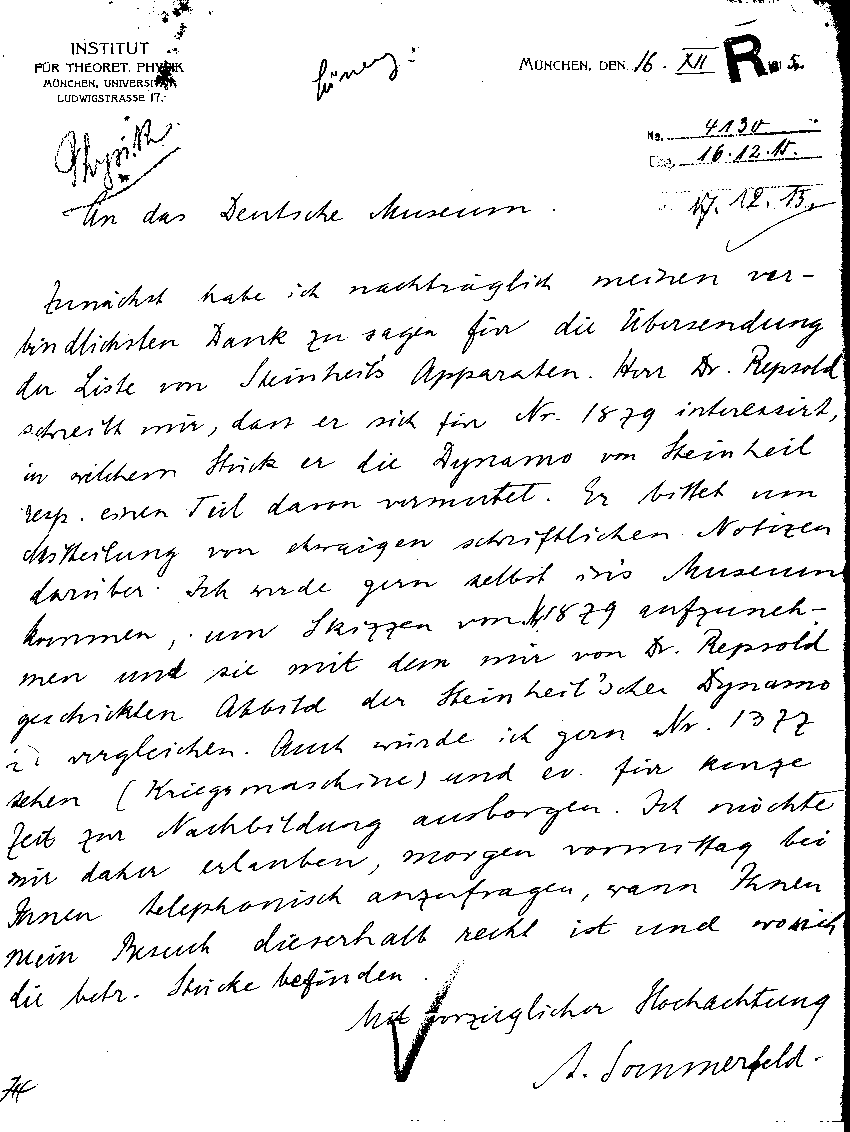 INSTITUT
FÜR THEORET. PHYSIK
MÜNCHEN, UNIVERSITÄT
LUDWIGSTRASSE 17.
MÜNCHEN, DEN 16. XII 5.
R
No. 4130
Eing. 16.12.15.
17.12.15.
Physik
An das Deutsche Museum.
Zunächst habe ich nachträglich meinen ver-
bindlichsten Dank zu sagen für die Übersendung
der Liste von Steinheil's Apparaten. Herr Dr. Repsold
schreibt mir, dass er sich für Nr. 1879 interessirt,
in welchem Stück er die Dynamo von Steinheil
resp. einen Teil davon vermutet. Er bittet um
Mitteilung von etwaigen schriftlichen Notizen
darüber. Ich werde gern selbst ins Museum
kommen, um Skizzen von 1879 aufzuneh-
men und sie mit dem mir von Dr. Repsold
geschickten Abbild der Steinheil'schen Dynamo
zu vergleichen. Auch würde ich gern Nr. 1377
sehen (Kriegsmaschine) und ev. für kurze
Zeit zur Nachbildung ausborgen. Ich möchte
mir daher erlauben, morgen vormittag bei
Ihnen telephonisch anzufragen, wann Ihnen
mein Besuch dieserhalb recht ist und wo sich
die betr. Stücke befinden.
Mit vorzüglicher Hochachtung
A. Sommerfeld.